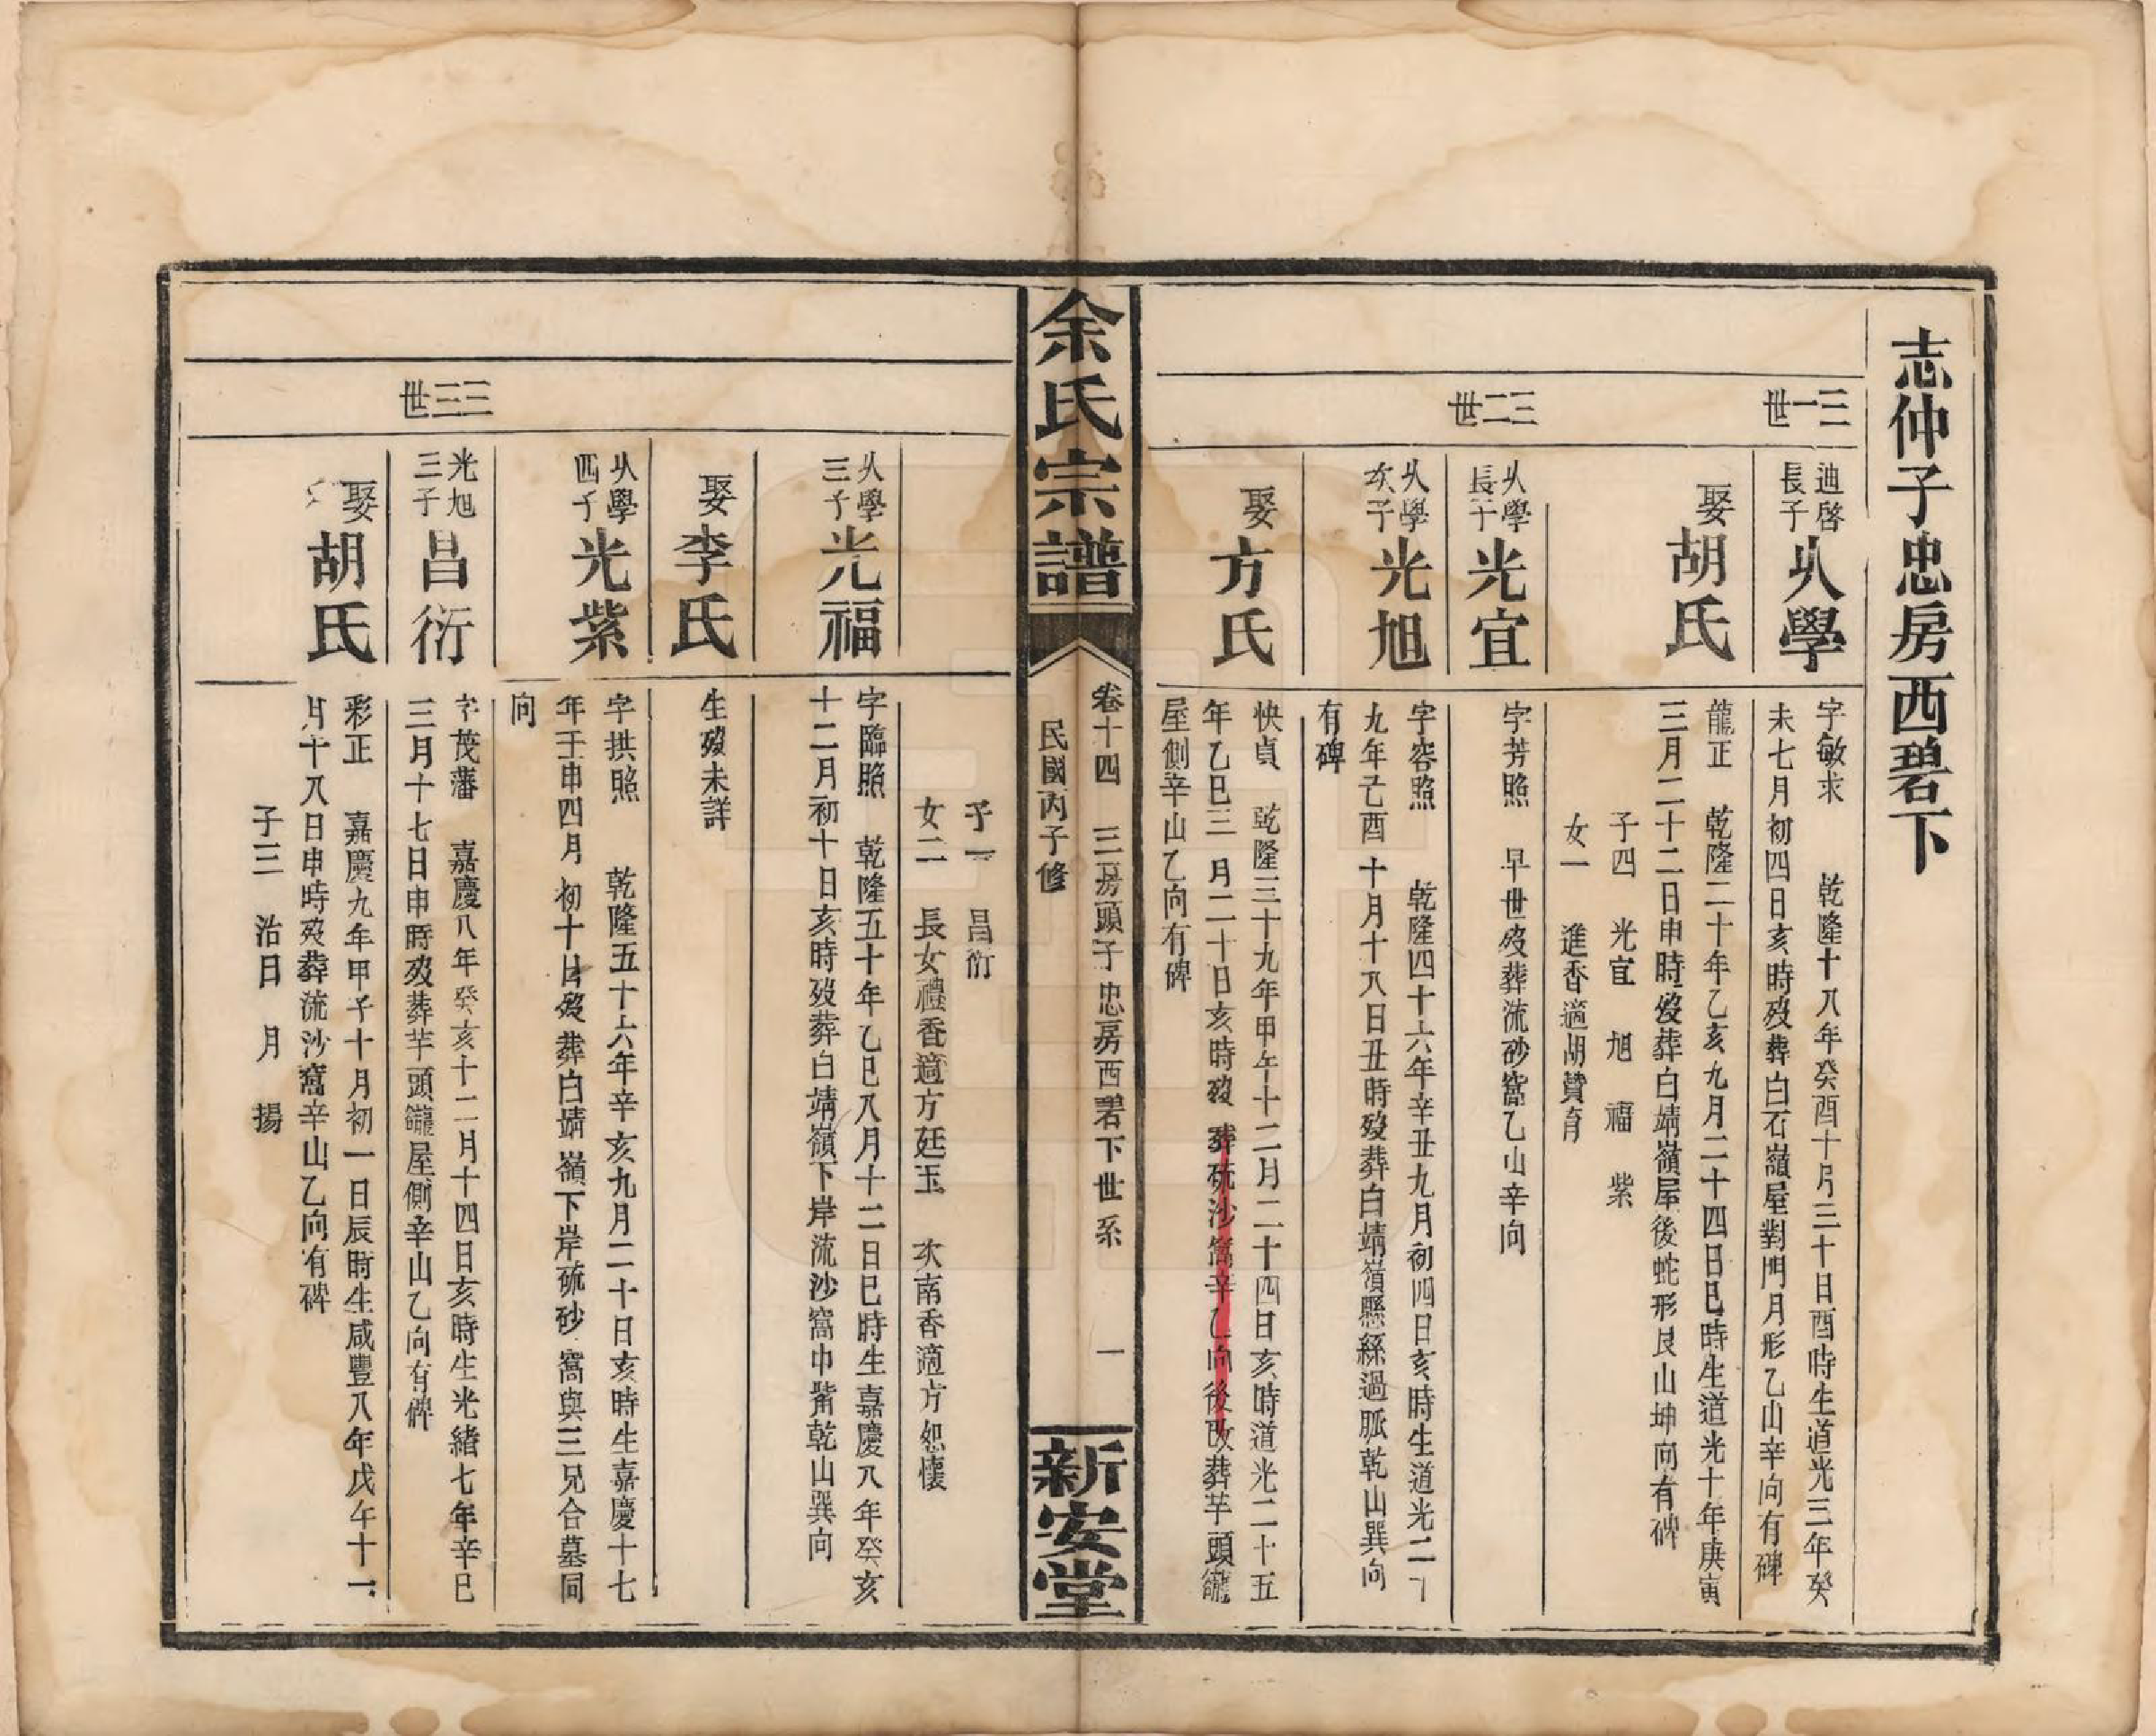 志仲子忠房西碧下
三一世
迪啓長子
㕥學
字敏求 乾隆十八年癸酉十月三十日酉時生道光三年癸
未七月初四日亥時歿葬白石嶺屋對門月形乙山辛向有碑
娶胡氏
龍正 乾隆二十年乙亥九月二十四日巳時生道光十年庚寅
三月二十二日申時歿葬白靖嶺屋後蛇形艮山坤向有碑
子四 光宜 旭 福 紫
女一 進香適胡贊育
三二世
㕥學長子
光宜
字芳照 早世歿葬流砂窩乙山辛向
㕥學次子
光旭
字容照 乾隆四十六年辛丑九月初四日亥時生道光二十
九年己酉十月十八日丑時歿葬白靖嶺懸絲過脈乾山巽向
有碑
娶方氏
快貞 乾隆三十九年甲午十二月二十四日亥時道光二十五
年乙巳三月二十日亥時歿葬硫沙窩辛乙向後改葬芋頭
屋側辛山乙向有碑
余氏宗譜
卷十四 三房頭子忠房西碧下世系 一
民國丙子修
新安堂
子一 昌衍
女二 長女禮香適方廷玉 次南香適方恕懷
㕥學三子
光福
字臨照 乾隆五十年乙巳八月十二日巳時生嘉慶八年癸亥
十二月初十日亥時歿葬白靖嶺下岸流沙窩巾觜乾山巽向
娶李氏
生歿未詳
㕥學四子
光紫
字拱照 乾隆五十六年辛亥九月二十日亥時生嘉慶十七
年壬申四月初十日歿葬白靖嶺下岸硫砂窩與三兄合墓同
向
三三世
光旭三子
昌衍
字茂藩 嘉慶八年癸亥十二月十四日亥時生光緒七年辛巳
三月十七日申時歿葬芋頭屋側辛山乙向有碑
娶胡氏
彩正 嘉慶九年甲子十月初一日辰時生咸豐八年戊午十一
月十八日申時歿葬流沙窩辛山乙向有碑
子三 治日 月 揚